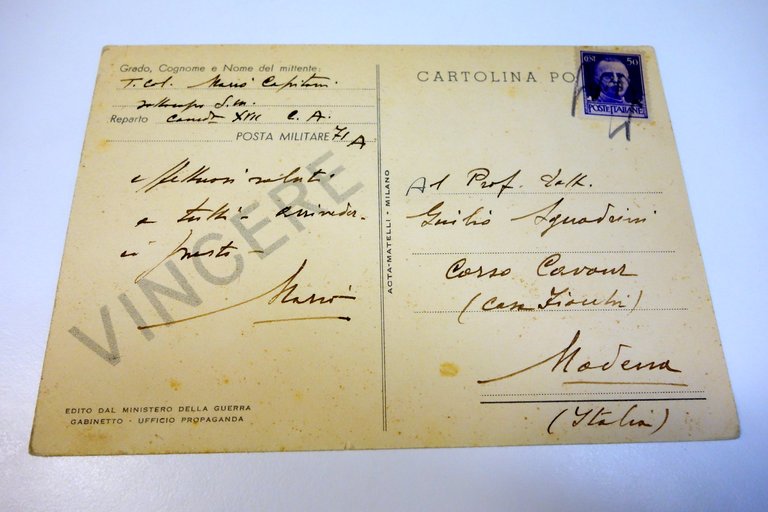 Grado, Cognome e Nome del mittente:
T. Col. Mario Capitani
sottocapo S.M.
Reparto Comdo XVII C. A.
POSTA MILITARE 71 A
affettuosi saluti
a tutti - arriveder-
ci presto -
Mario
VINCERE
EDITO DAL MINISTERO DELLA GUERRA
GABINETTO - UFFICIO PROPAGANDA
ACTA-MATELLI - MILANO
CARTOLINA PO
50
POSTE ITALIANE
Al Prof. Dott.
Giulio Squadrini
Corso Cavour
(casa Fiocchi)
Modena
(Italia)